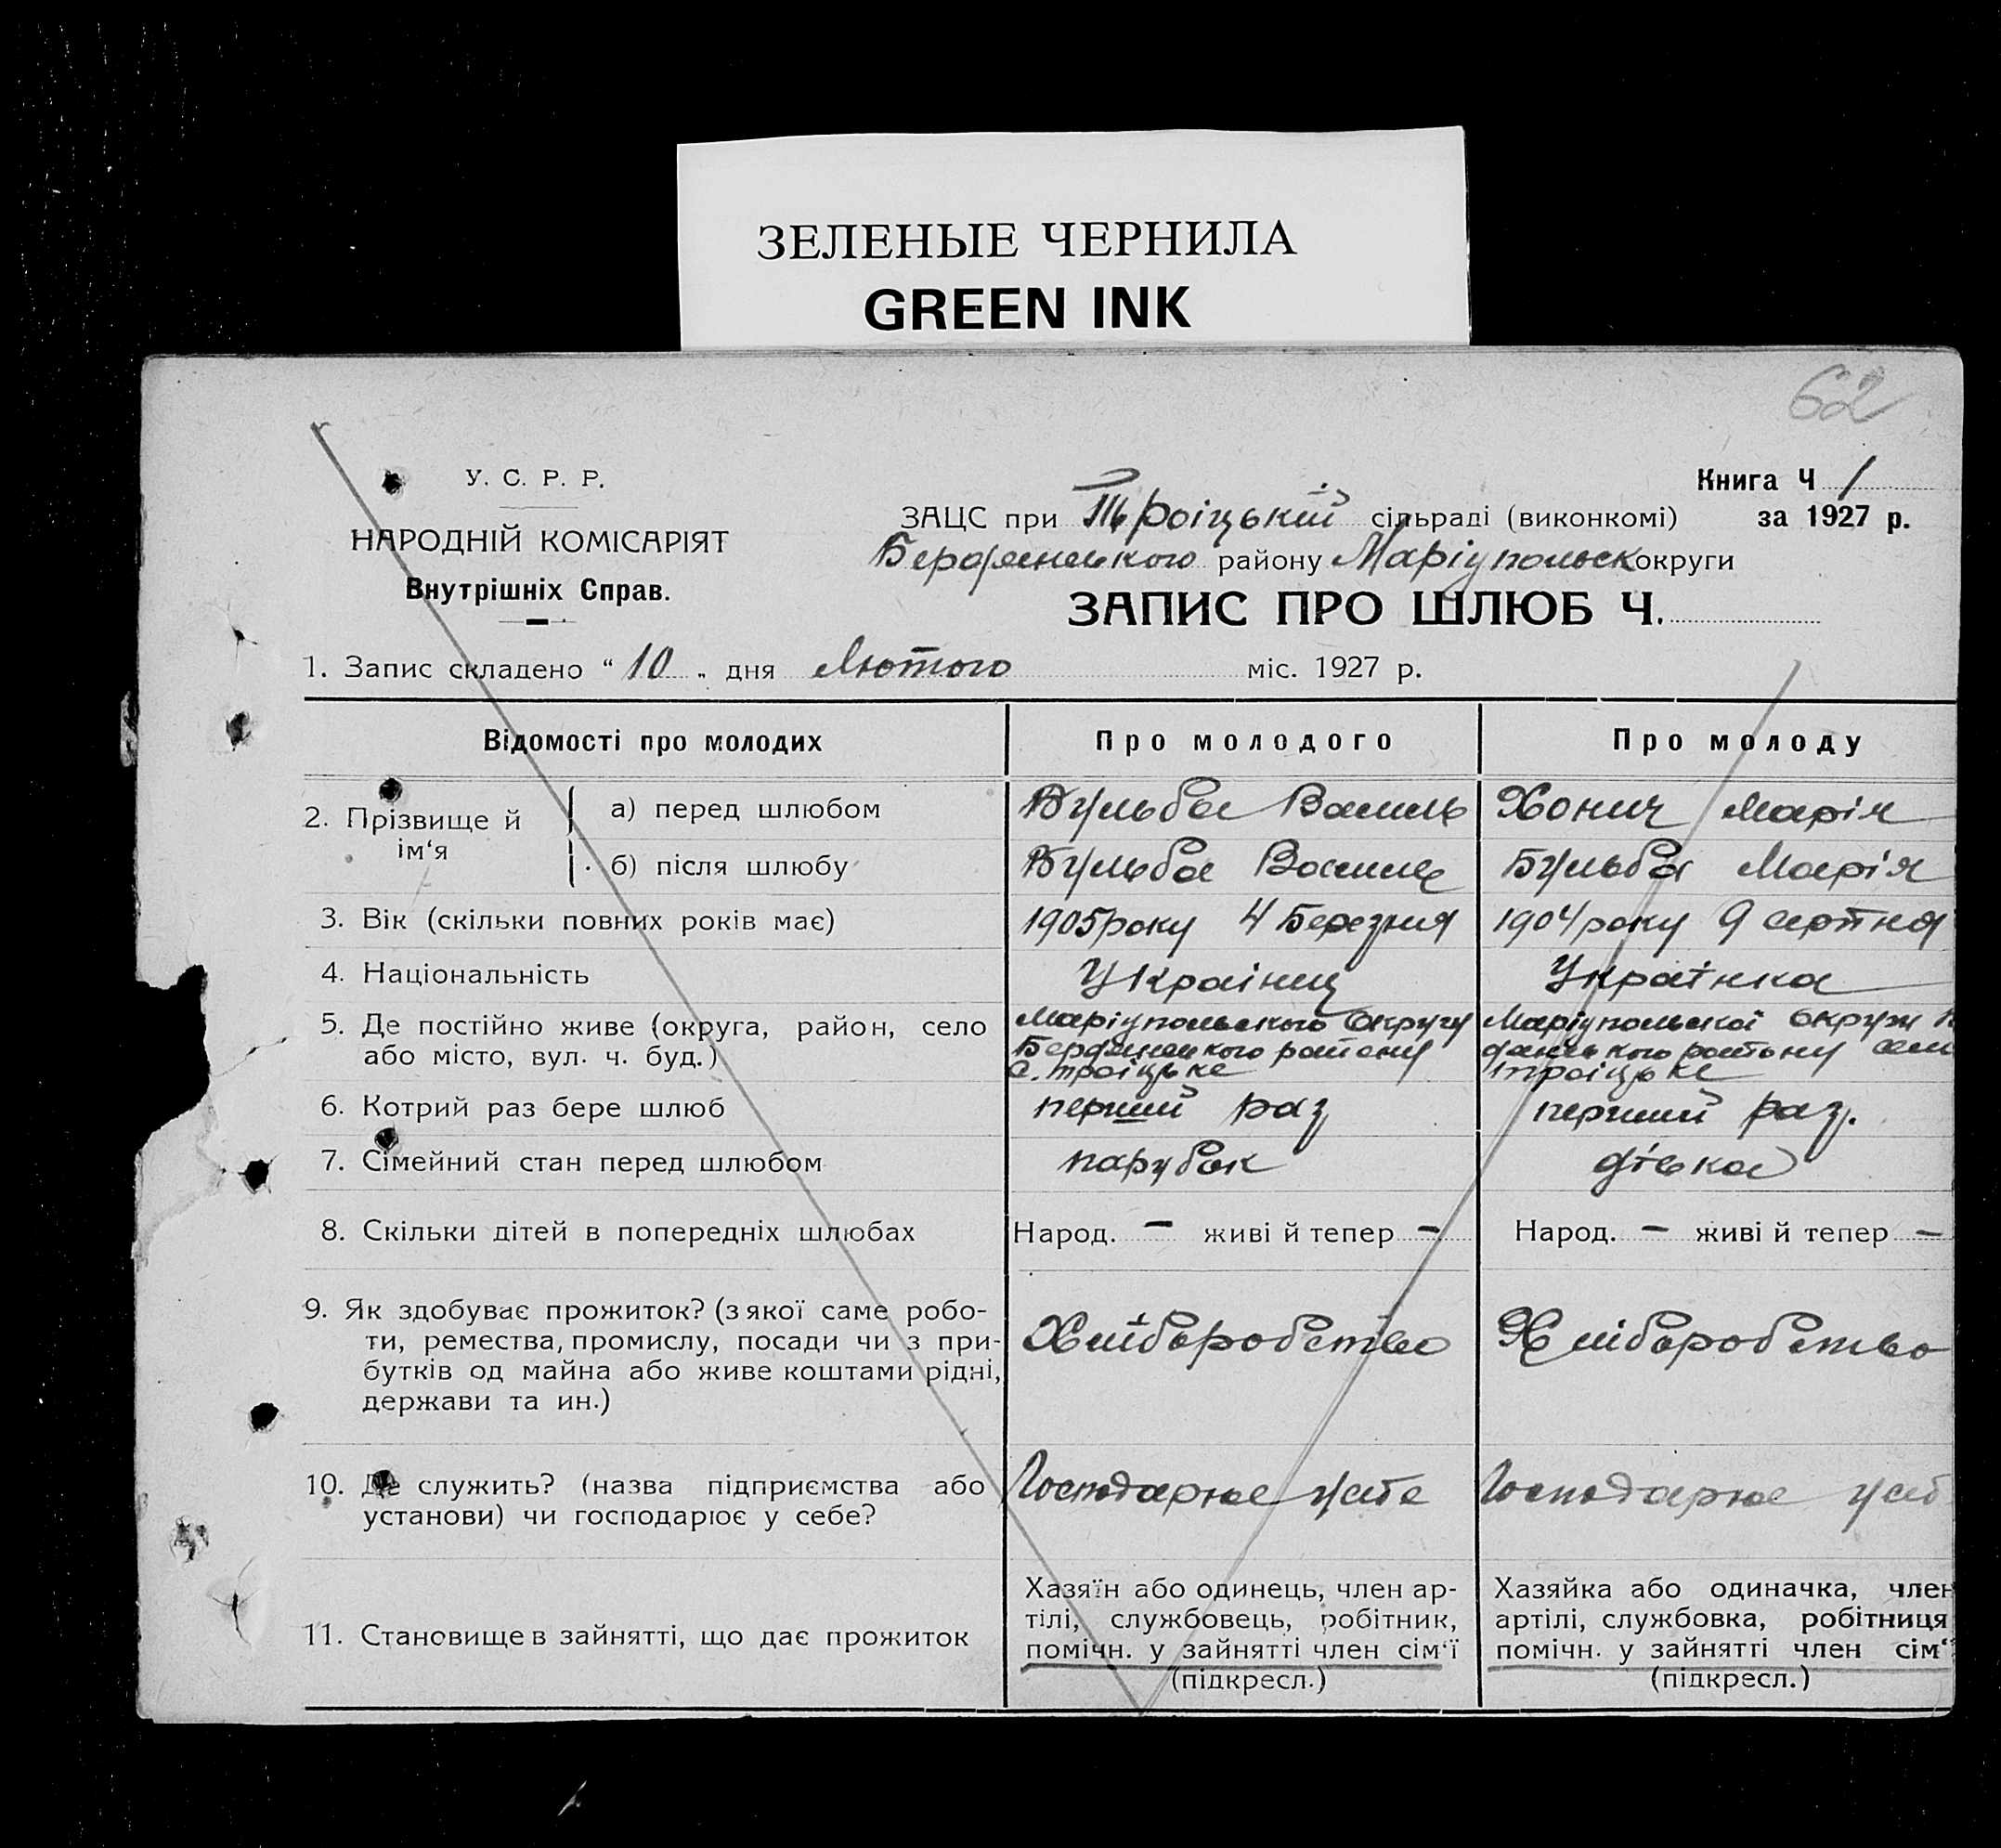 ЗЕЛЕНЫЕ ЧЕРНИЛА
GREEN INK
62
У. С. Р. Р.
НАРОДНІЙ КОМІСАРІЯТ
Внутрішніх Справ.
Книга Ч 1
ЗАЦС при Троіцькій сільраді (виконкомі) за 1927 р.
Бердянського району Маріупольськ округи
ЗАПИС ПРО ШЛЮБ Ч.
1. Запис складено “ 10 „ дня Лютого міс. 1927 р.
Відомості про молодих Про молодого Про молоду
2. Прізвище й ім‘я
а) перед шлюбом Бульба Василь Хонич Марія
б) після шлюбу Бульба Василь Бульба Марія
3. Вік (скільки повних років має) 1905 року 4 Березня 1904 року 9 серпня
4. Національність Украіниц Украінка
5. Де постійно живе (округа, район, село Маріупольського Округу Маріупольскоі округи
або місто, вул. ч. буд.) Бердянського району дянського району
с. Троіцьке Троіцьке
6. Котрий раз бере шлюб перший раз перший раз.
7. Сімейний стан перед шлюбом парубок дівка
8. Скільки дітей в попередніх шлюбах Народ. – живі й тепер – Народ. – живі й тепер –
9. Як здобуває прожиток? (з якої саме робо-
ти, ремества, промислу, посади чи з при- Хліборобство Хліборобство
бутків од майна або живе коштами рідні,
держави та ин.)
10. Де служить? (назва підприємства або Господарює у себе Господарює у себ
установи) чи господарює у себе?
11. Становище в зайнятті, що дає прожиток
Хазяїн або одинець, член ар-
тілі, службовець, робітник,
помічн. у зайнятті член сім‘ї
(підкресл.)
Хазяйка або одиначка, член
артілі, службовка, робітниця
помічн. у зайнятті член сім‘
(підкресл.)